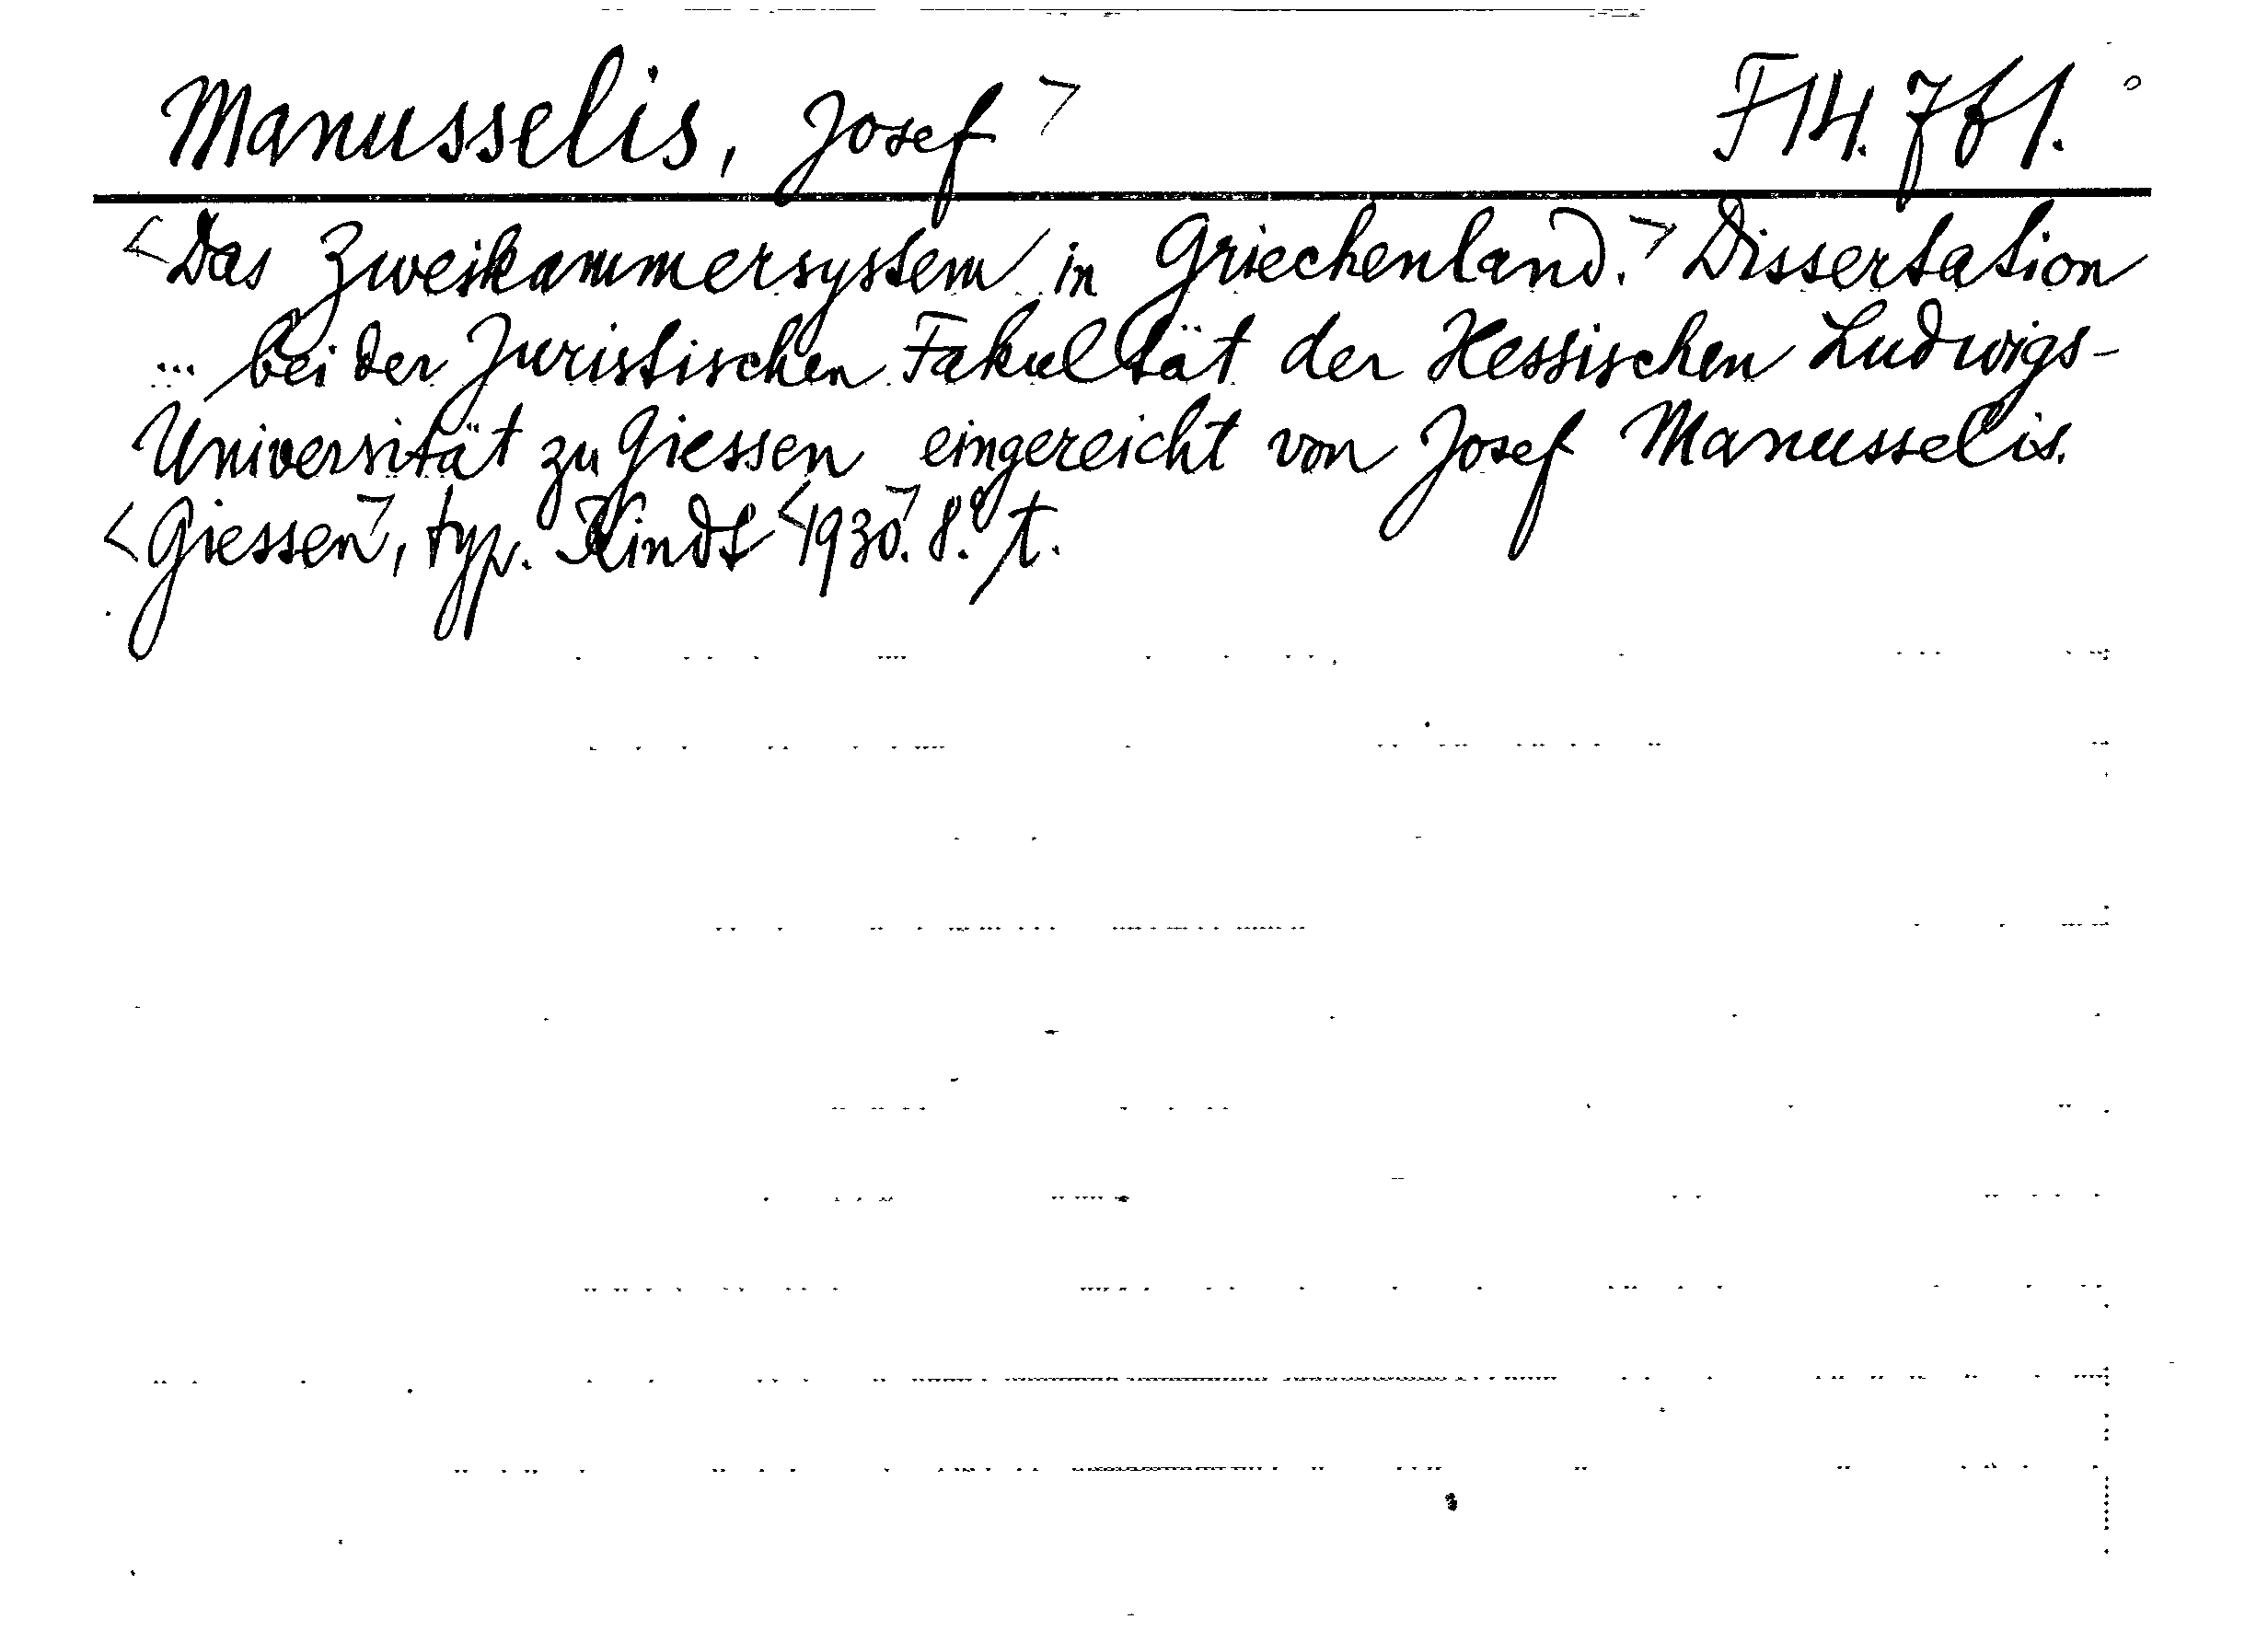 Manusselis, Josef> F 14.761.
<Das Zweikammersystem in Griechenland.> Dissertation
... bei der Juristischen Fakultät der Hessischen Ludwigs-
Universität zu Giessen eingereicht von Josef Manusselis.
<Giessen>, typ. Kindt <1930>. 8.° t.